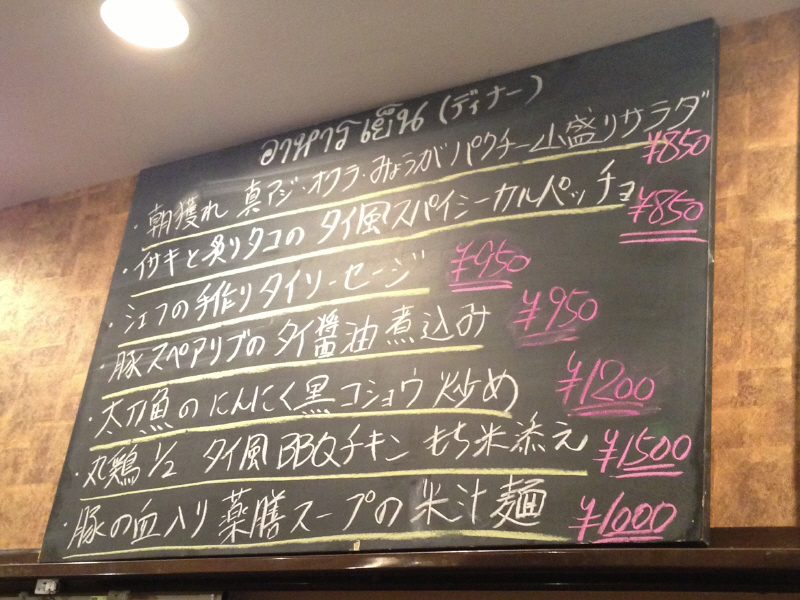 อาหารเย็น (ディナー)
・朝獲れ 真アジ・オクラ・みょうがパクチー山盛りサラダ ¥850
・イサキと炙りタコの タイ風スパイシーカルパッチョ ¥850
・シェフの手作りタイソーセージ ¥950
・豚スペアリブの タイ醤油煮込み ¥950
・太刀魚のにんにく黒コショウ炒め ¥1200
・丸鶏1/2 タイ風BBQチキン もち米添え ¥1500
・豚の血入り薬膳スープの米汁麺 ¥1000